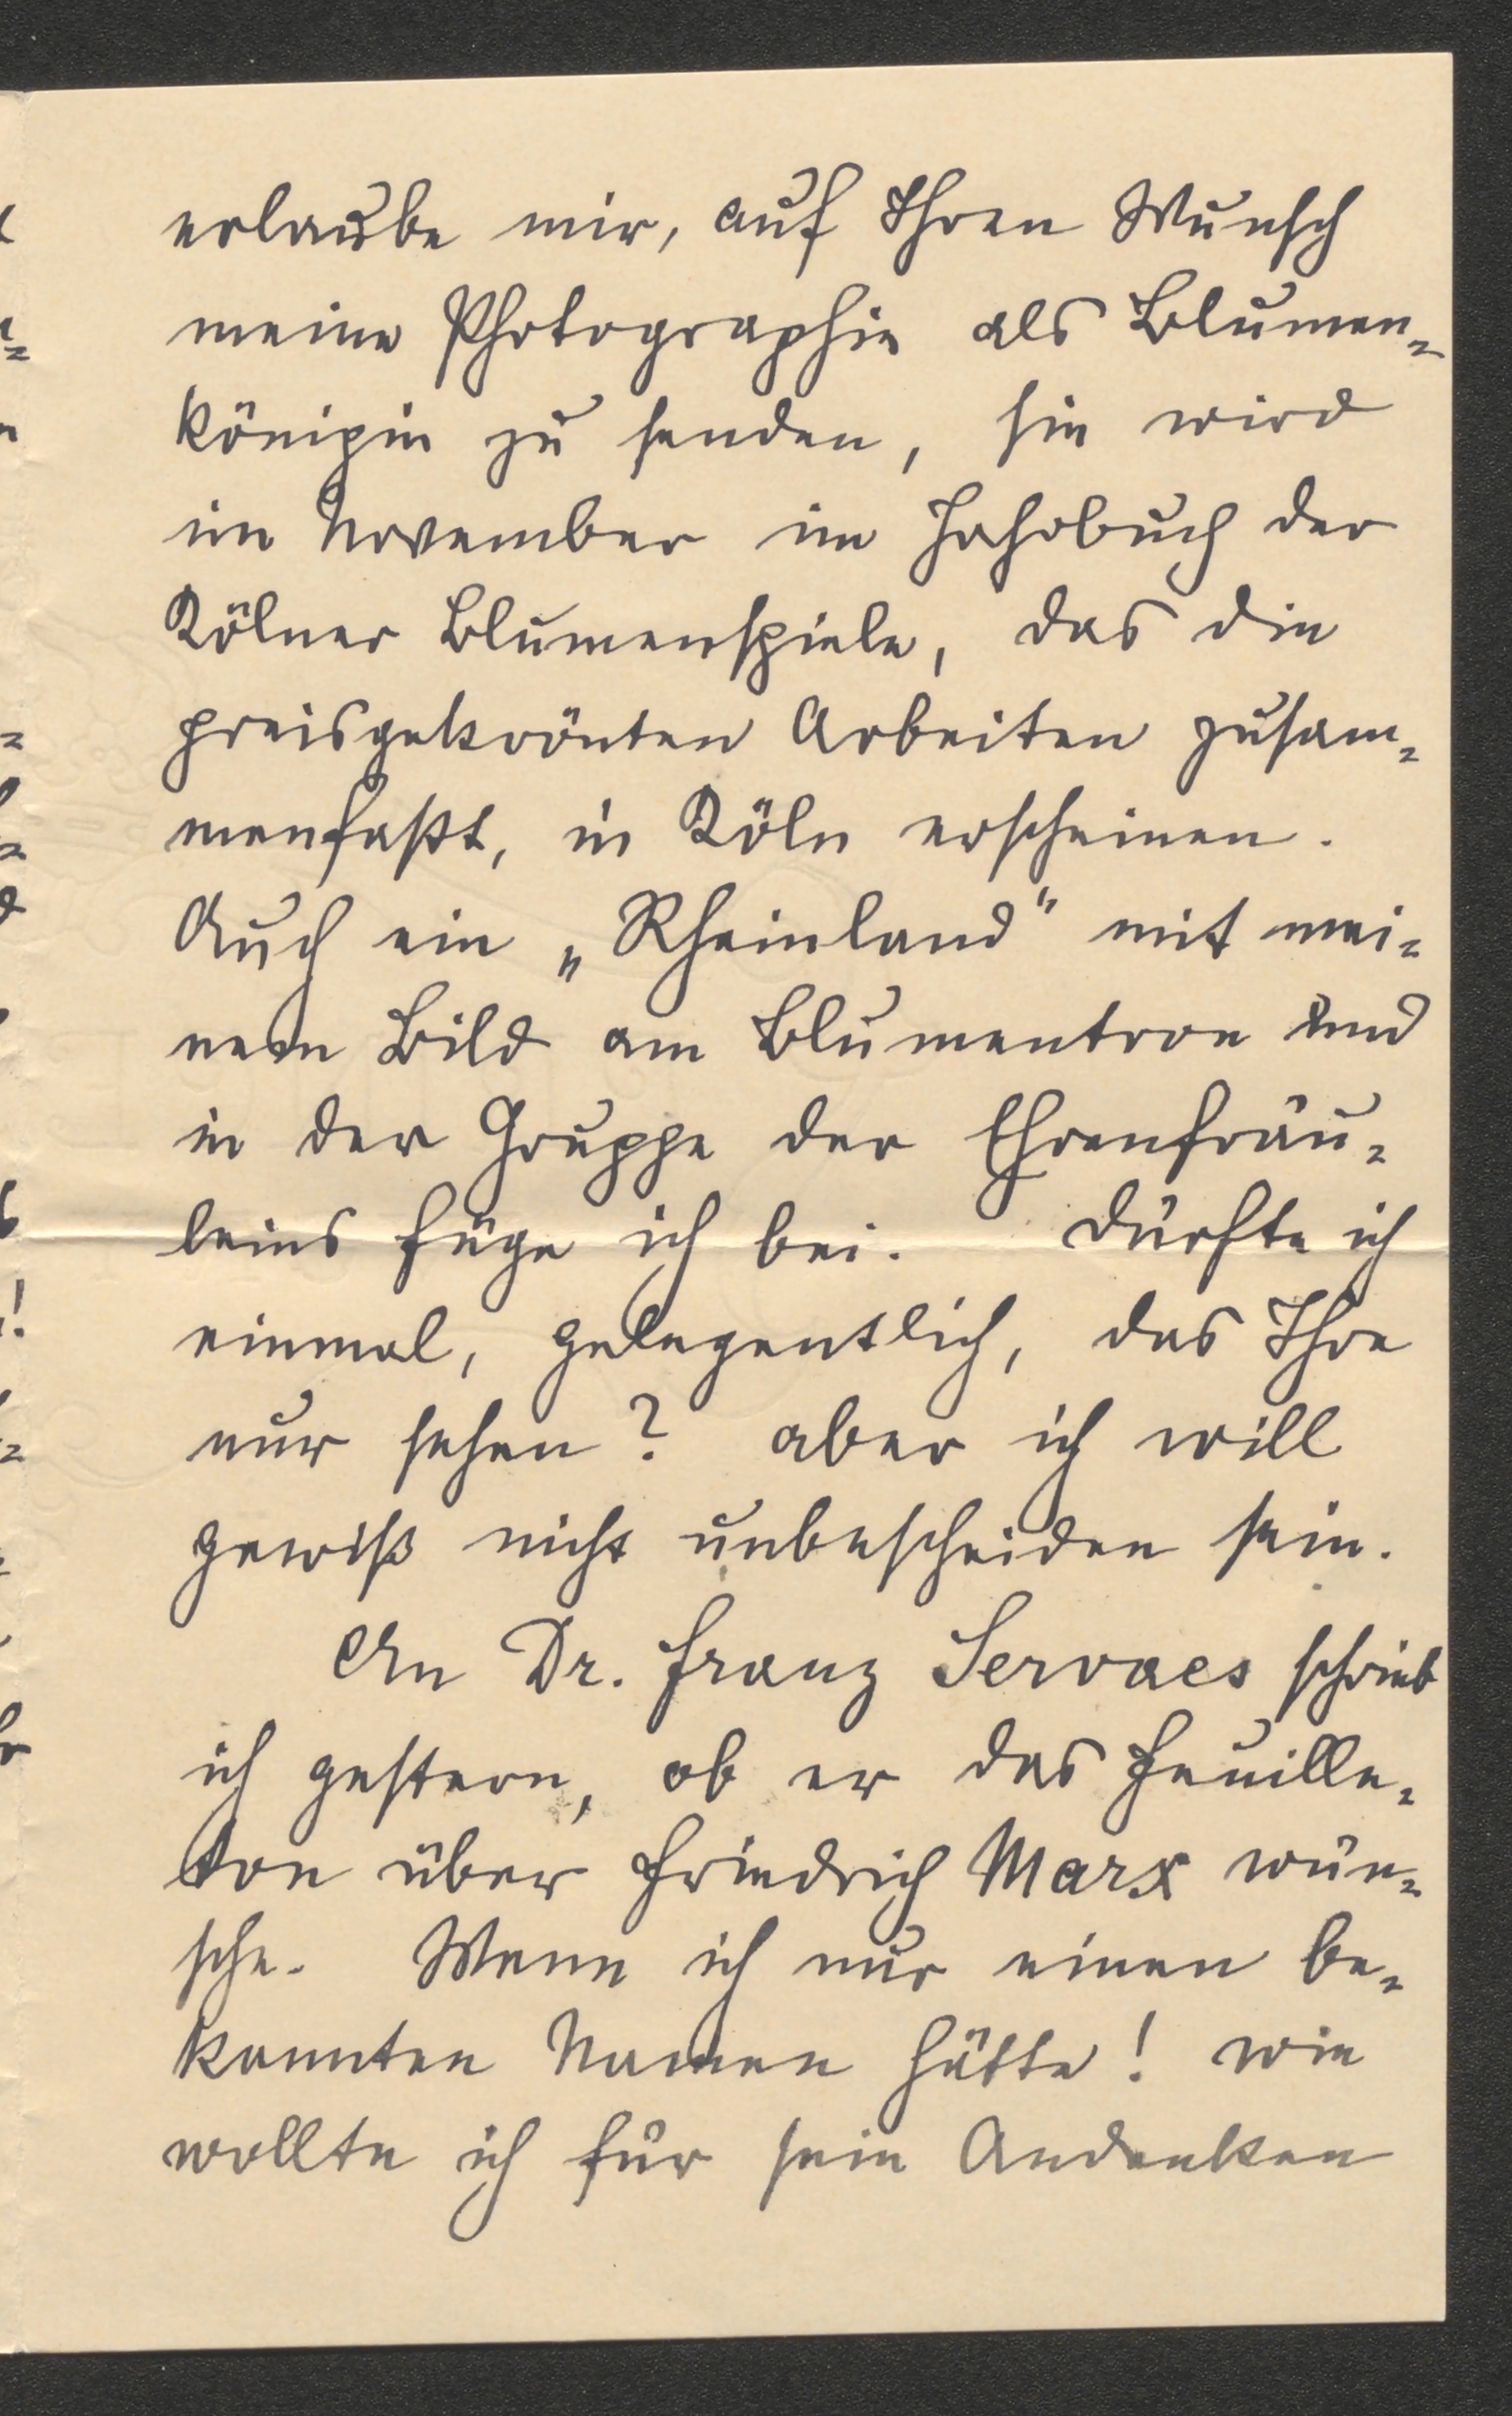 erlaube mir, auf Ihren Wunsch
meine Photographie als Blumen-
königin zu senden, sie wird
im November im Jahrbuch der
Kölner Blumenspiele, das die
preisgekrönten Arbeiten zusam-
menfaßt, in Köln erscheinen.
Auch ein „Rheinland“ mit mei-
nem Bild am Blumentron und
in der Gruppe der Ehrenfräu-
leins füge ich bei. Dürfte ich
einmal, gelegentlich, das Ihre
nur sehen? aber ich will
gewiß nicht unbescheiden sein.
An Dr. Franz Servaes schrieb
ich gestern, ob er das Feuille-
ton über Friedrich Marx wün-
sche. Wenn ich nur einen be-
kannten Namen hätte! wie
wollte ich für sein Andenken